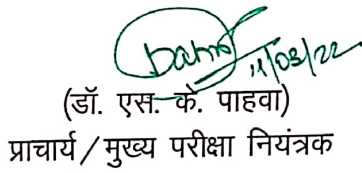 11/03/22
(डॉ. एस. के. पाहवा)
प्राचार्य / मुख्य परीक्षा नियंत्रक